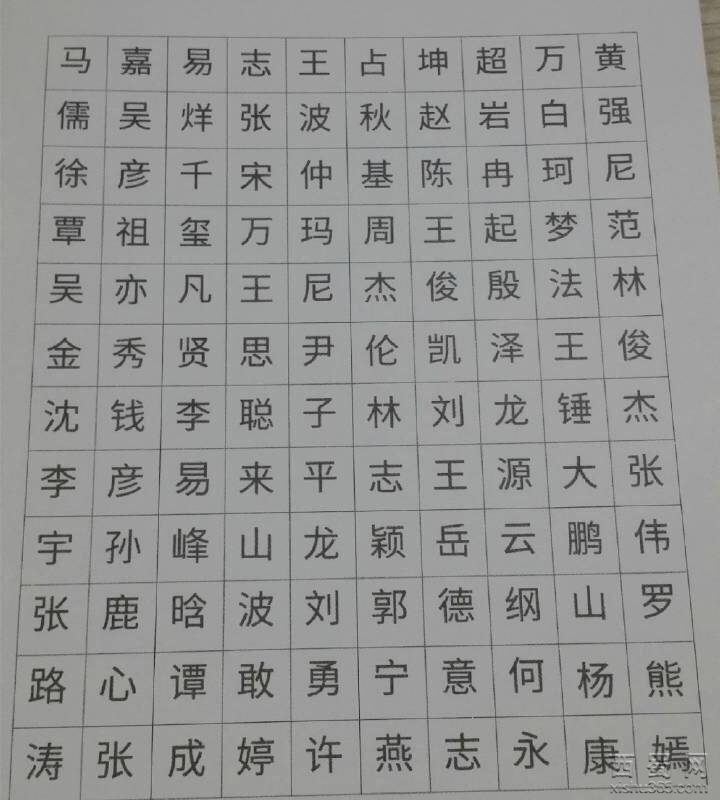 马 嘉 易 志 王 占 坤 超 万 黄
儒 吴 烊 张 波 秋 赵 岩 白 强
徐 彦 千 宋 仲 基 陈 冉 珂 尼
覃 祖 玺 万 玛 周 王 起 梦 范
吴 亦 凡 王 尼 杰 俊 殷 法 林
金 秀 贤 思 尹 伦 凯 泽 王 俊
沈 钱 李 聪 子 林 刘 龙 锤 杰
李 彦 易 来 平 志 王 源 大 张
宇 孙 峰 山 龙 颖 岳 云 鹏 伟
张 鹿 晗 波 刘 郭 德 纲 山 罗
路 心 谭 敢 勇 宁 意 何 杨 熊
涛 张 成 婷 许 燕 志 永 康 嫣
西蜀网
xishu365.com